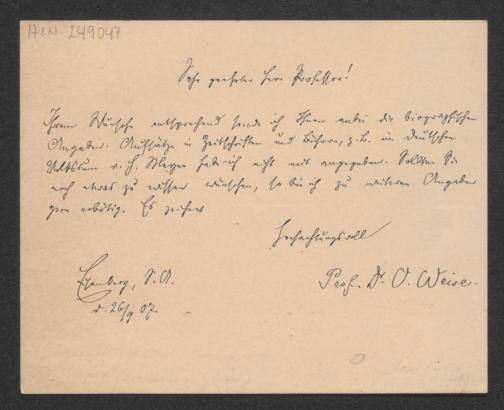 H.I.N. 249047
Sehr geehrter Herr Professor!
Ihrem Wunsche entsprechend sende ich Ihnen anbei die biographischen
Angaben. Aufsätze in Zeitschriften und Büchern, z. B. im Deutschen
Volkstum v. H. Meyer habe ich nicht mit angegeben. Sollten Sie
noch etwas zu wissen wünschen, so bin ich zu weiteren Angaben
gern erbötig. Es zeichnet
Hochachtungsvoll
Eisenberg, S. A.
d. 26/9 07.
Prof. Dr. O. Weise.